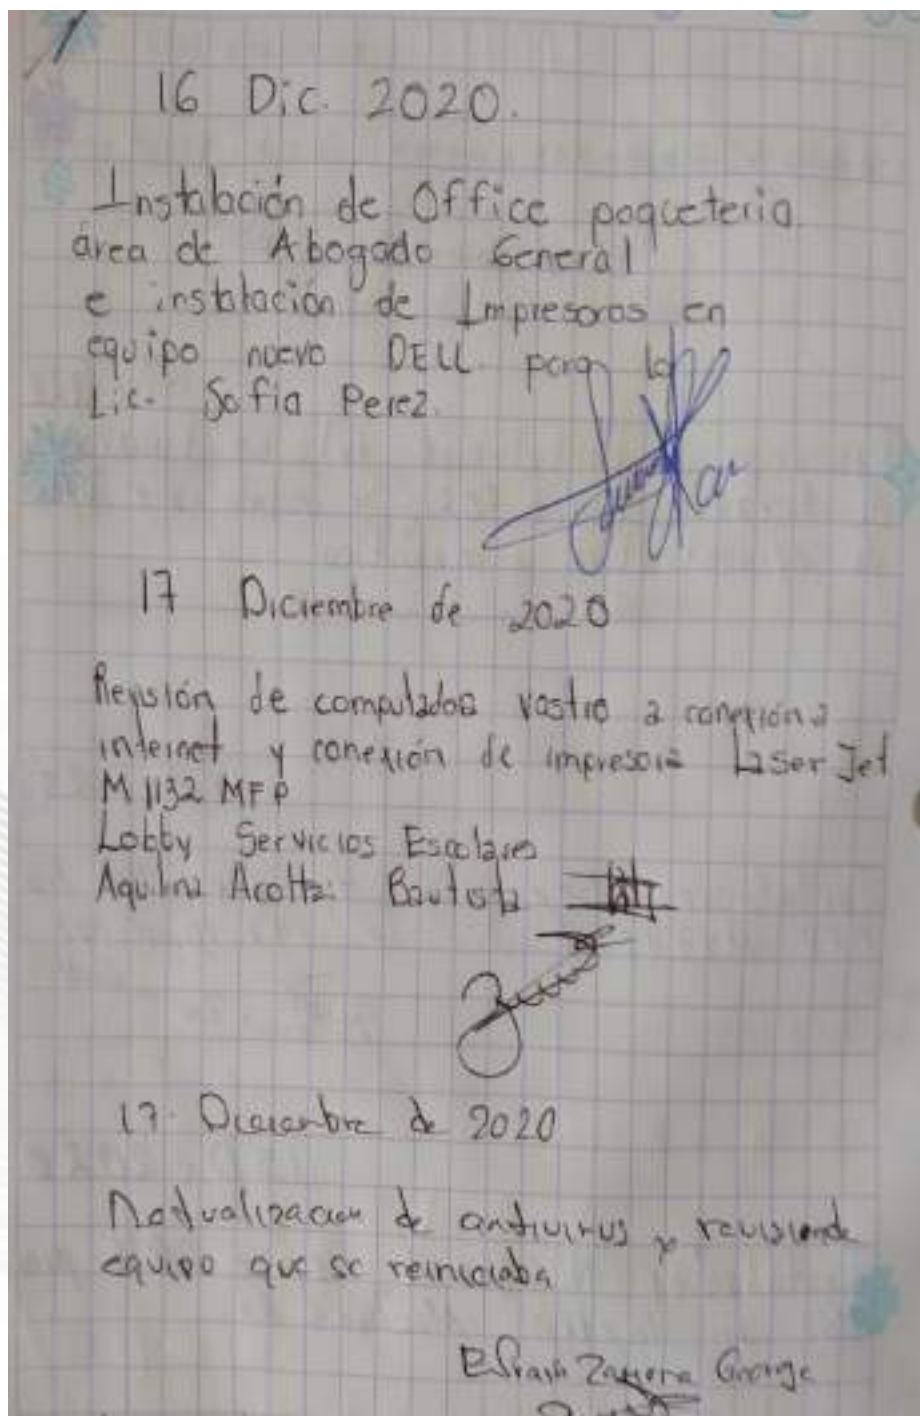 16 Dic. 2020.
Instalación de Office paqueteria
área de Abogado General
e instalación de Impresoras en
equipo nuevo DELL para la
Lic. Sofia Perez.
17 Diciembre de 2020
Revisión de computadora vostro a conexión a
internet y conexión de impresora LaserJet
M1132 MFP
Lobby Servicios Escolares
Aquilina Bautista
17. Diciembre de 2020
de antivirus y revision de
equipo que se reiniciaba
Zamora George